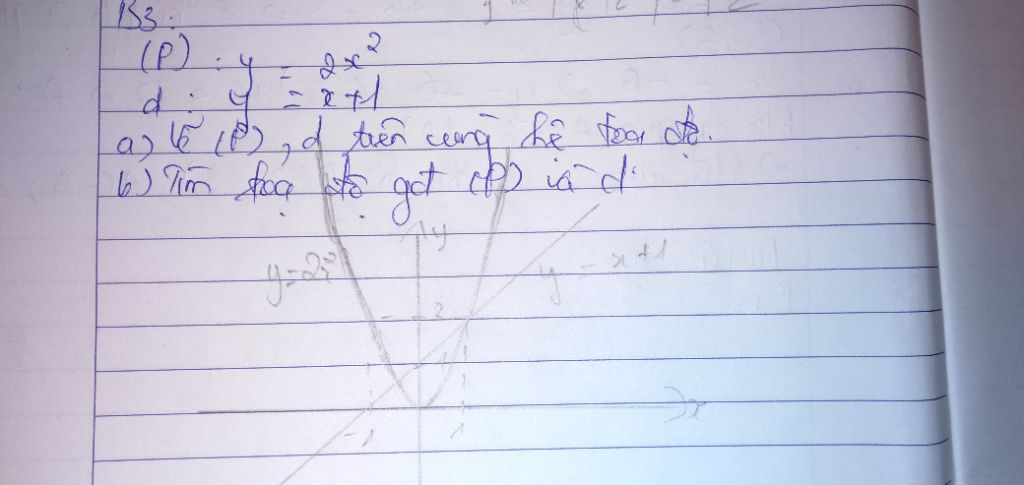 B3:
(P) : y = 2x²
d : y = x+1
a) Vẽ (P), d trên cùng hệ tọa độ.
b) Tìm tọa độ gđ (P) và d
y
y = 2x²
y = x+1
2
1
-1 1 x